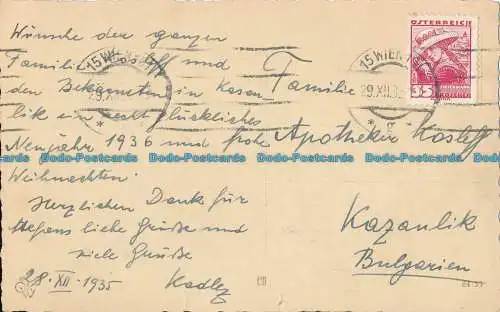 Wünsche der ganzen
Familie Kosleff und
den Bekannten in Kasan-
lik ein recht glückliches
Neujahr 1936 und frohe
Weihnachten.
Herzlichen Dank für
Stefans liebe Grüße und
viele Grüße
28. XII. 1935 Kadlez
15 WIEN
29.X
15 WIEN
29.XII.35
ÖSTERREICH
35
GROSCHEN
Familie
Apotheker Kosleff
Kazanlik
Bulgarien
Bodo-Postcards Bodo-Postcards Bodo-Postcards Bodo-Postcards Bodo-Postcards